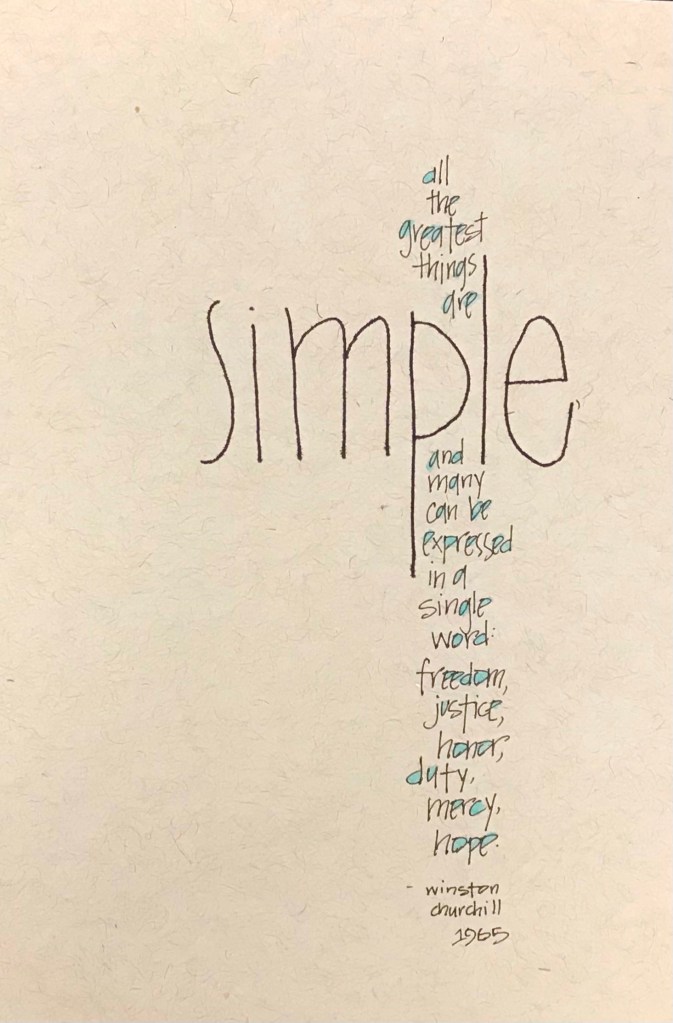 all
the
greatest
things
are
simple
and
many
can be
expressed
in a
single
word:
freedom,
justice,
honor,
duty,
mercy,
hope.
- winston
churchill
1965